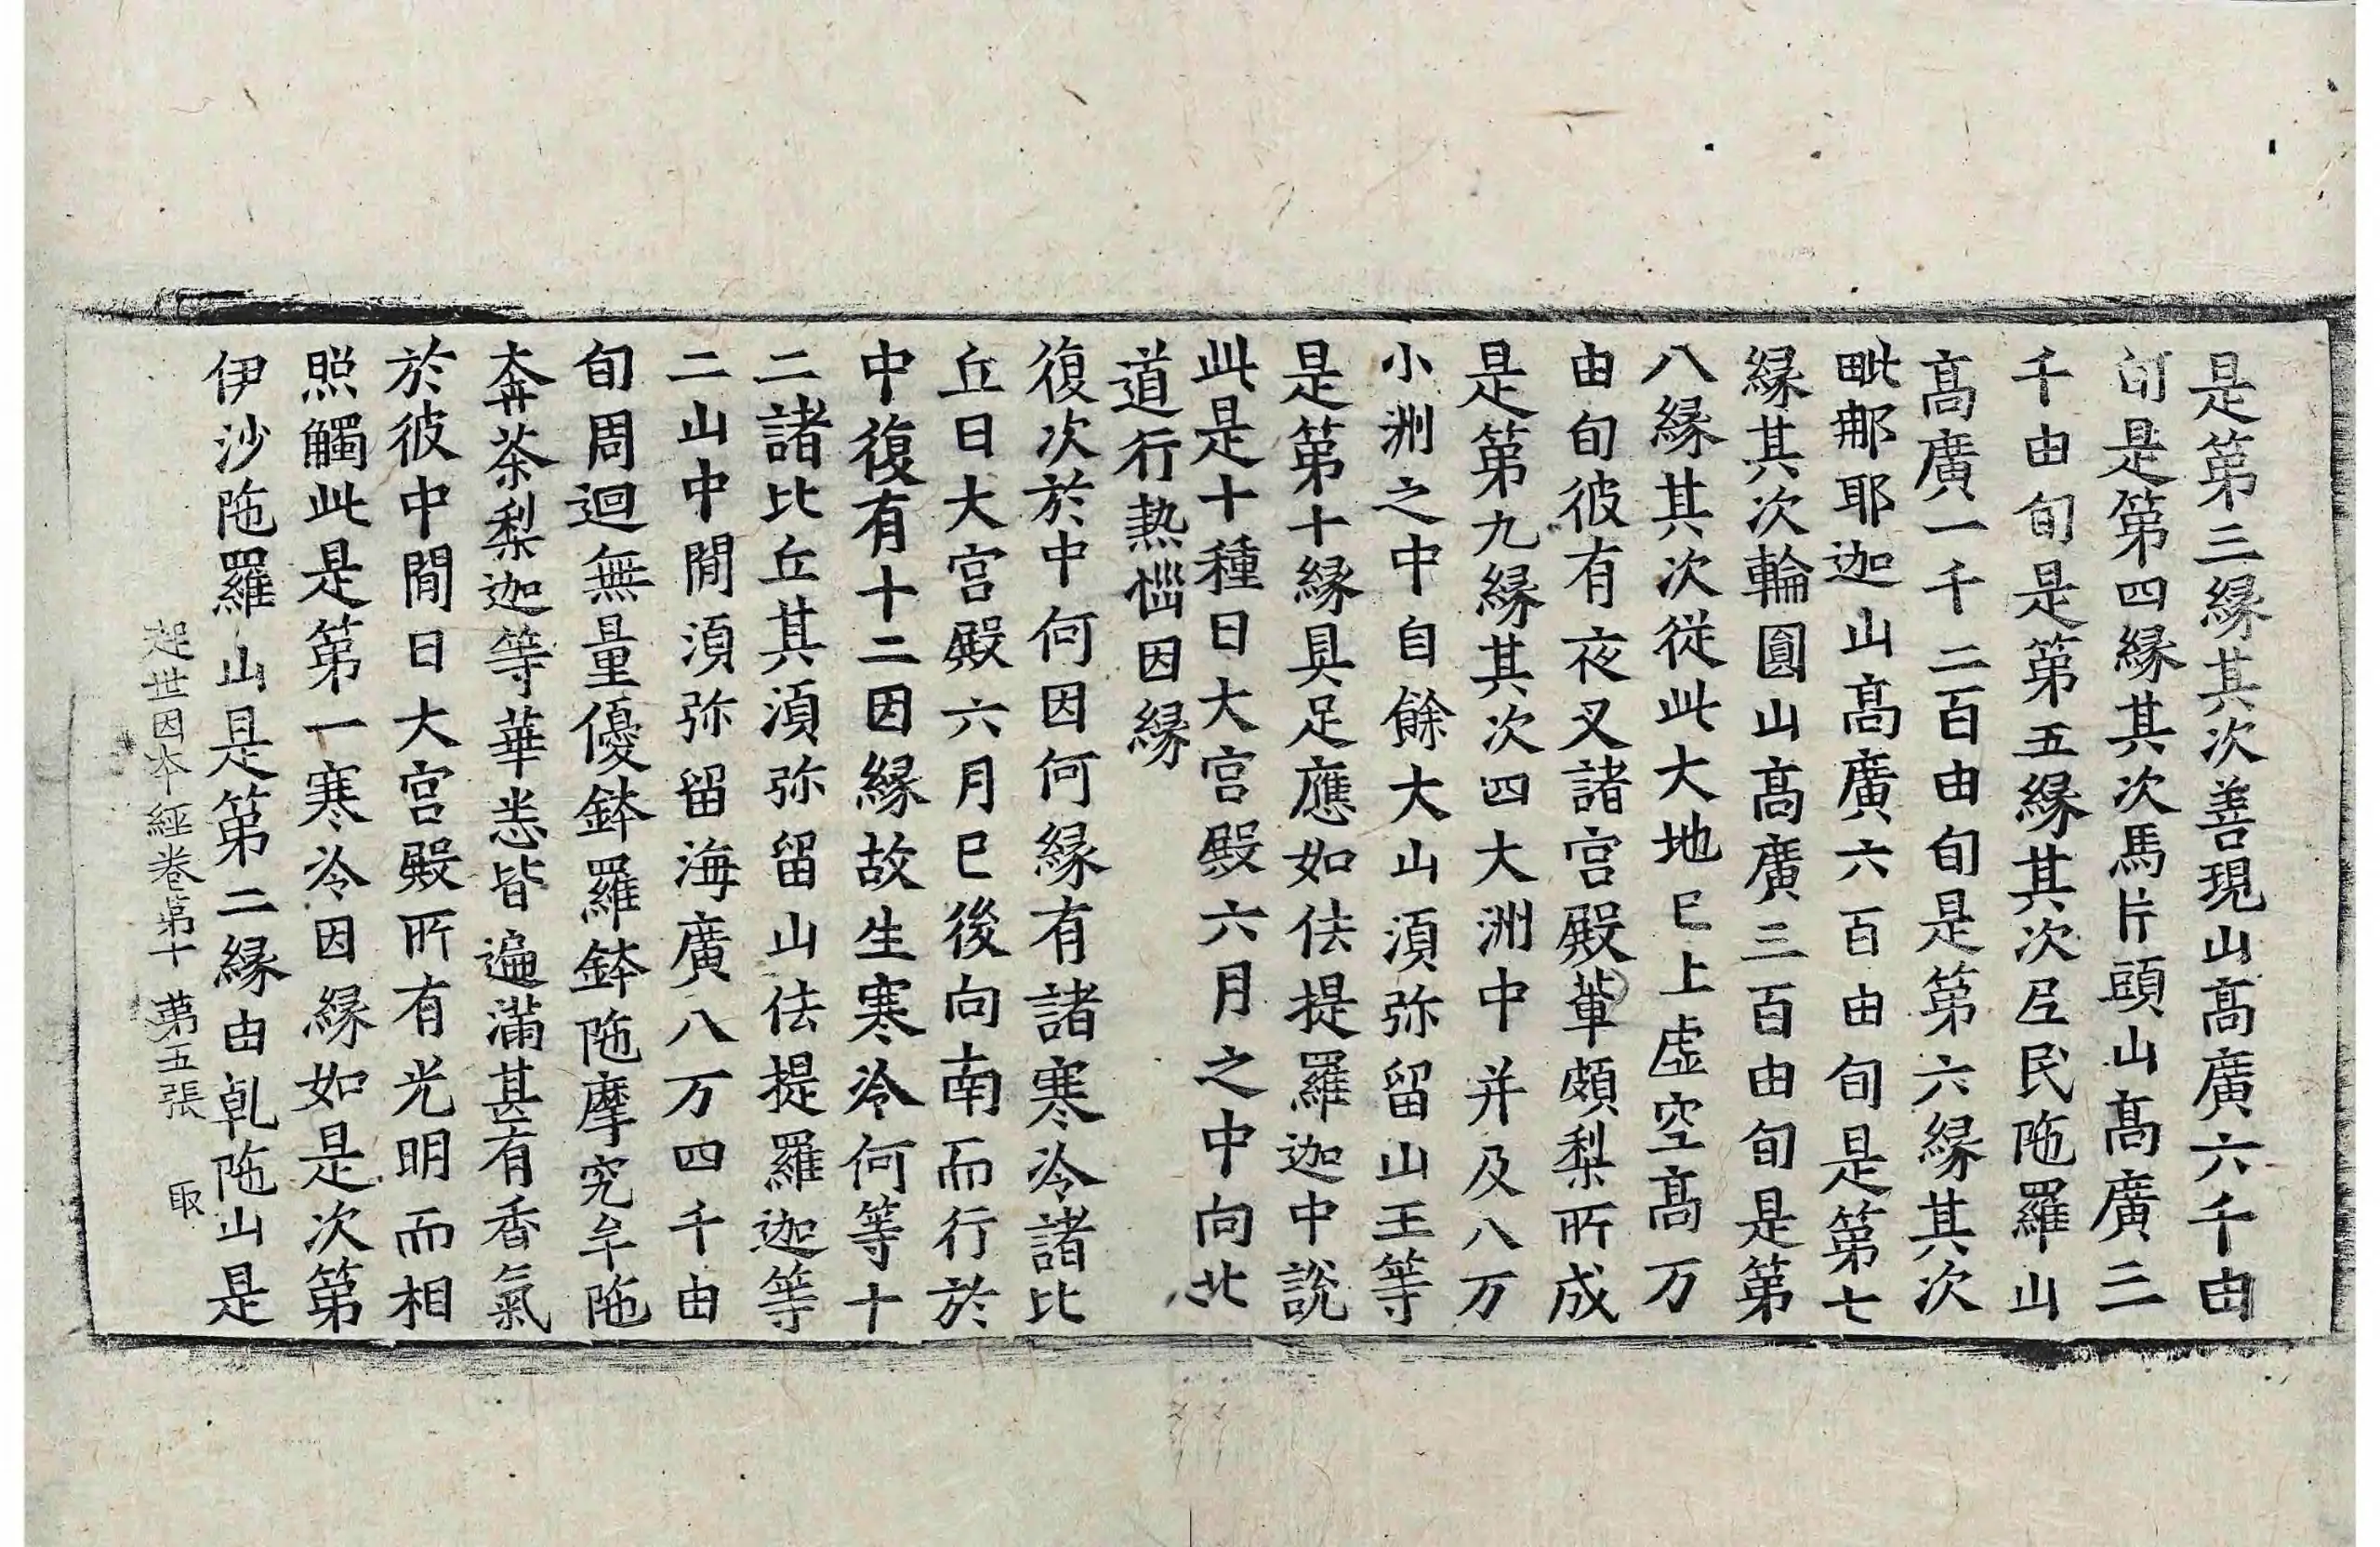 是第三緣其次善現山髙廣六千由
旬是第四緣其次馬片頭山髙廣三
千由旬是第五緣其次𡰱民陁羅山
髙廣一千二百由旬是第六緣其次
毗郍耶迦山髙廣六百由旬是第七
緣其次輪圓山髙廣三百由旬是第
八緣其次從此大地已上虛空髙万
由旬彼有夜叉諸宮殿軰頗梨所成
是第九緣其次四大洲中并及八万
小洲之中自餘大山湏弥留山王等
是第十緣具足應如佉提羅迦中說
此是十種日大宮殿六月之中向北
道行熱惱因緣
復次於中何因何緣有諸寒冷諸比
丘日大宮殿六月已後向南而行於
中復有十二因緣故生寒冷何等十
二諸比丘其湏弥留山佉提羅迦等
二山中閒湏弥留海廣八万四千由
旬周迴無量優鉢羅鉢陁摩究牟陁
奔茶梨迦等華悉皆遍滿甚有香氣
於彼中閒日大宮殿所有光明而相
照觸此是第一寒冷因緣如是次第
伊沙陁羅山是第二緣由乹陁山是
起世因本經卷第十 第五張 取